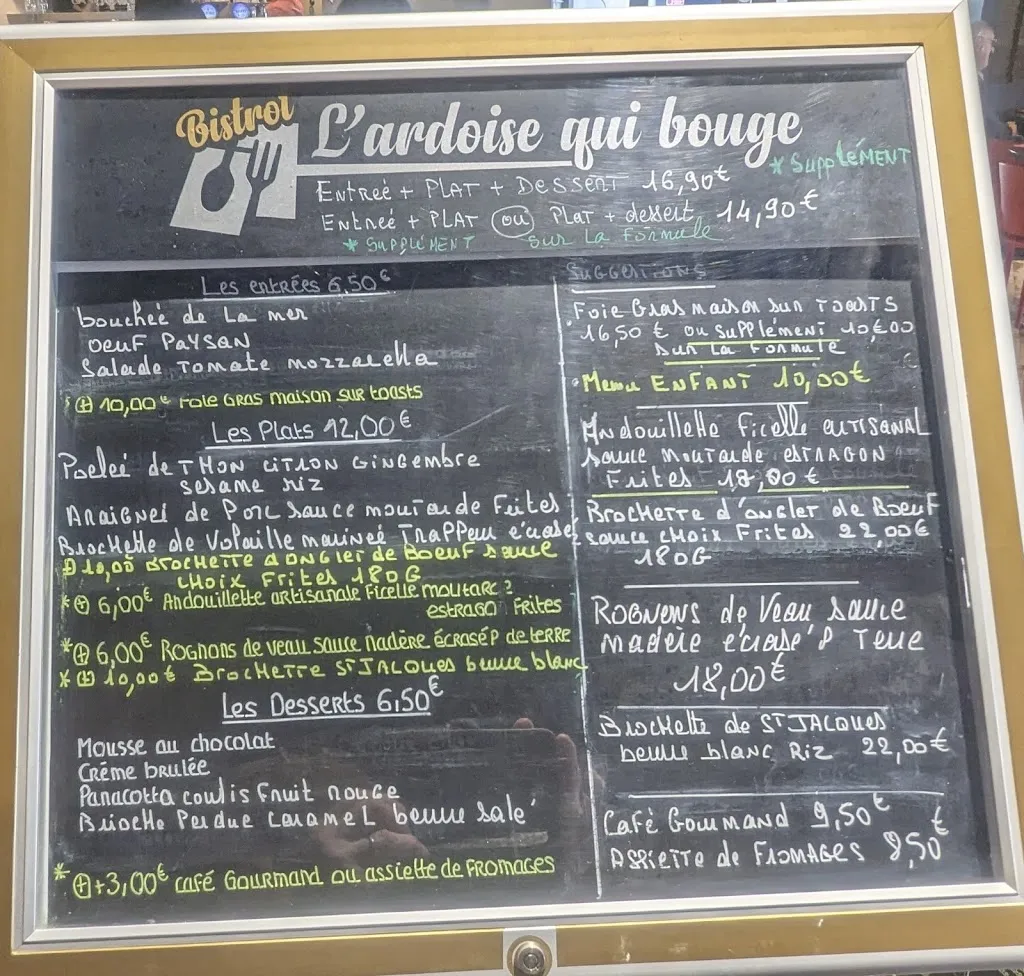 Bistrot
L'ardoise qui bouge
* SUPPLÉMENT
Entreé + PLAT + Dessert 16,90€
Entreé + PLAT ou PLAT + dessert 14,90€
* SUPPLÉMENT sur La Formule
Les entrées 6,50€
bouchée de La mer
OEUF PAYSAN
Salade Tomate mozzarella
⊕ 10,00€ Foie GRAS maison SUR toasts
Les Plats 12,00€
Poeleé de THON CITRON GINGEMBRE
SESAME riz
Araigneé de Porc sauce moutarde Frites
Brochette de Volaille marineé Trappeur écrasé
⊕ 10,00 BROCHETTE d'ONGLET de Boeuf sauce
CHOIX Frites 180G
*⊕ 6,00€ Andouillette artisanale Ficelle moutar
estrago Frites
*⊕ 6,00€ Rognons de veau sauce madère écrasé P de terre
*⊕ 10,00€ BROCHETTE ST JACQUES beurre blanc
Les Desserts 6,50€
Mousse au chocolat
Créme brulée
Panacotta coulis fruit rouge
Brioche Perdue caramel beurre salé
*⊕+3,00€ café Gourmand ou assiette de FROMAGES
SUGGESTIONS
Foie Gras maison sur TOASTS
16,50 € ou supplément 10€00
sur La Formule
• Menu ENFANT 10,00€
Andouillette ficelle ARTISANAL
sauce moutarde ESTRAGON
Frites 18,00€
Brochette d'onglet de Boeuf
sauce choix Frites 22,00€
180G
ROGNONS de Veau sauce
madère écrasé P Terre
18,00€
Brochette de ST JACQUES
beurre blanc Riz 22,00€
Café Gourmand 9,50€
ASSIETTE de FROMAGES 9,50€